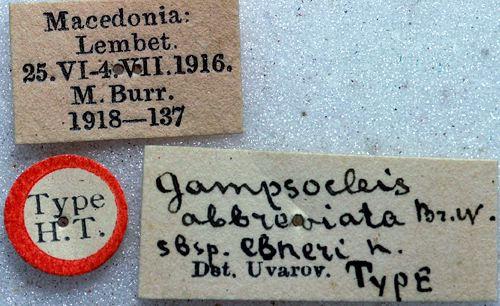 Macedonia:
Lembet.
25.VI-4.VII.1916.
M. Burr.
1918—137
Type
H.T.
Gampsocleis
abbreviata Br.W.
sbsp. ebneri n.
Det. Uvarov. TYPE